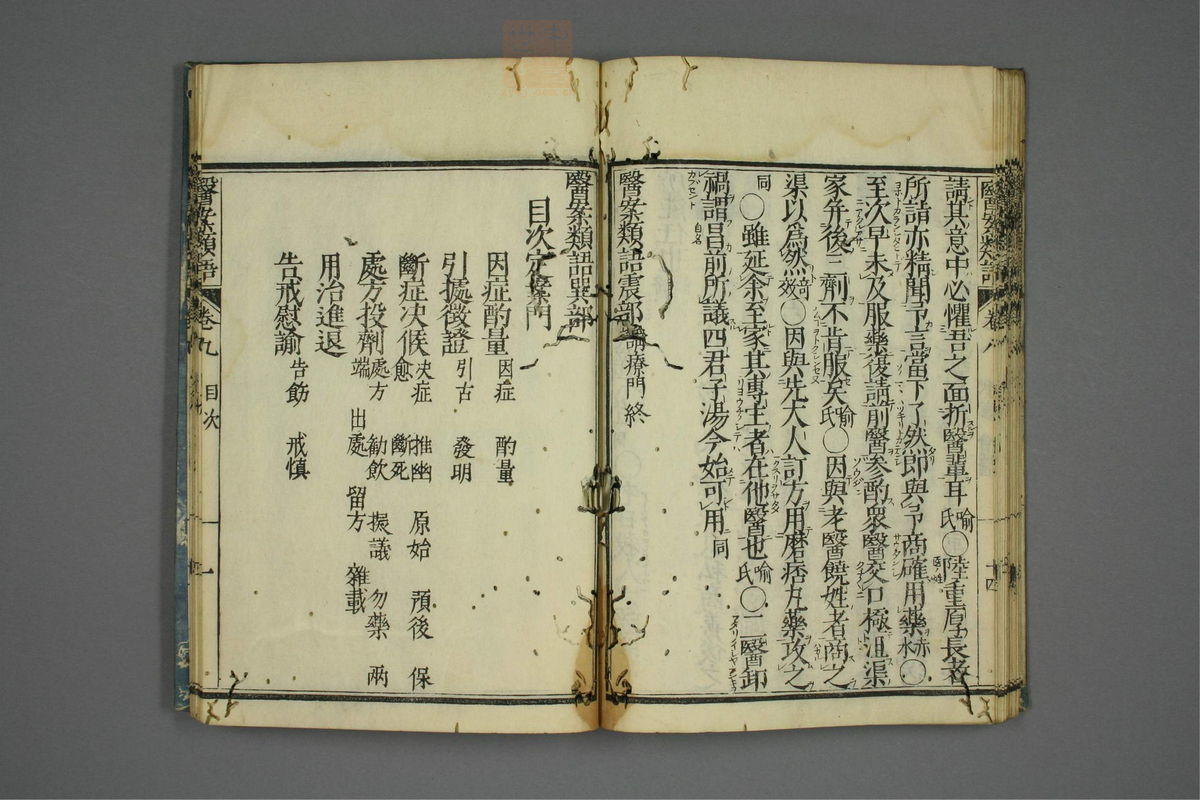 請其意中必懼吾之面折醫輩耳喩氏〇陸重原長者
所請亦精聞予言當下了然即與予商確用藥赤水〇
至次早未及服藥後請前醫參酌衆醫交口極沮渠
家并後二劑不肯服矣喩氏〇因與老醫饒姓者商之
渠以爲然奇效〇因與先大人訂方用磨痞丸藥攻之
同〇雖延余至家其專主者在他醫也喩氏〇二醫卸
禍謂昌自名前所議四君子湯今始可用同
醫案類語震部 療門終
醫案類語 卷八
十四
醫案類語巽部
目次定案門
因症酌量 因症 酌量
引據徴證 引古 發明
斷症決候 決症 推幽 原始 預後 保愈 斷死
處方投劑 處方 勸飲 振議 勿藥 兩端 出處 留方 雜載
用治進退
告戒慰諭 告飭 戒慎
醫案類語 卷九 目次 一